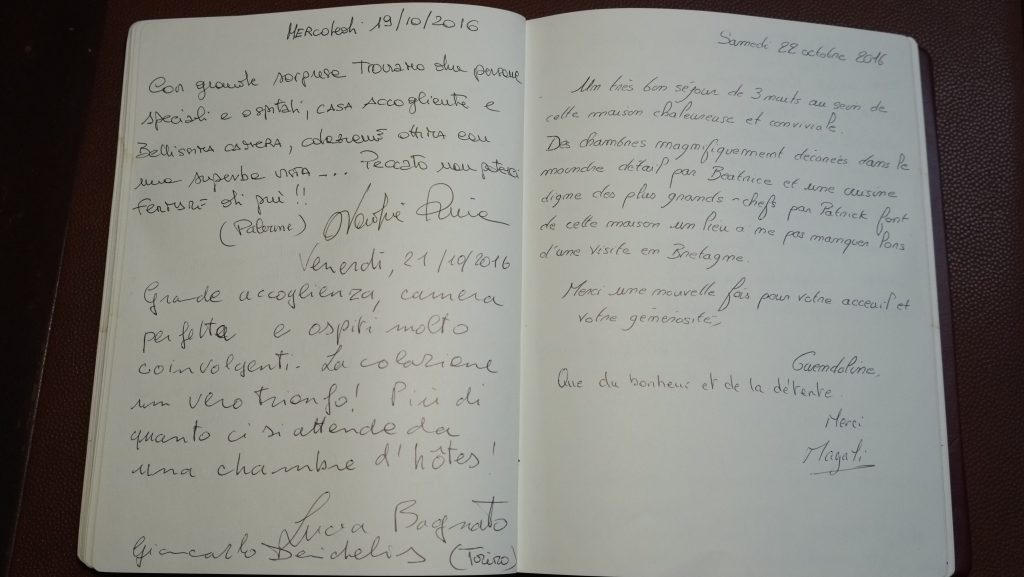 MERCOLEDì 19/10/2016
Con grande sorpresa Troviamo due persone
speciali e ospitali, CASA ACCOGLIENTE e
BELLISSIMA CAMERA, colazione ottima con
una superba VISTA -... Peccato non poterci
fermare di più !!
(Palermo)
Venerdì, 21/10/2016
Grande accoglienza, camera
perfetta e ospiti molto
coinvolgenti. La colazione
un vero trionfo! Più di
quanto ci si attende da
una chambre d'hôtes!
Lucia Bagnato
Giancarlo (Torino)
Samedi 22 octobre 2016
Un très bon séjour de 3 nuits au sein de
cette maison chaleureuse et conviviale.
Des chambres magnifiquement décorées dans le
moindre détail par Béatrice et une cuisine
digne des plus grands-chefs par Patrick font
de cette maison un lieu a ne pas manquer lors
d'une visite en Bretagne.
Merci une nouvelle fois pour votre acceuil et
votre générosité,
Gwendoline,
Que du bonheur et de la détente.
Merci
Magali